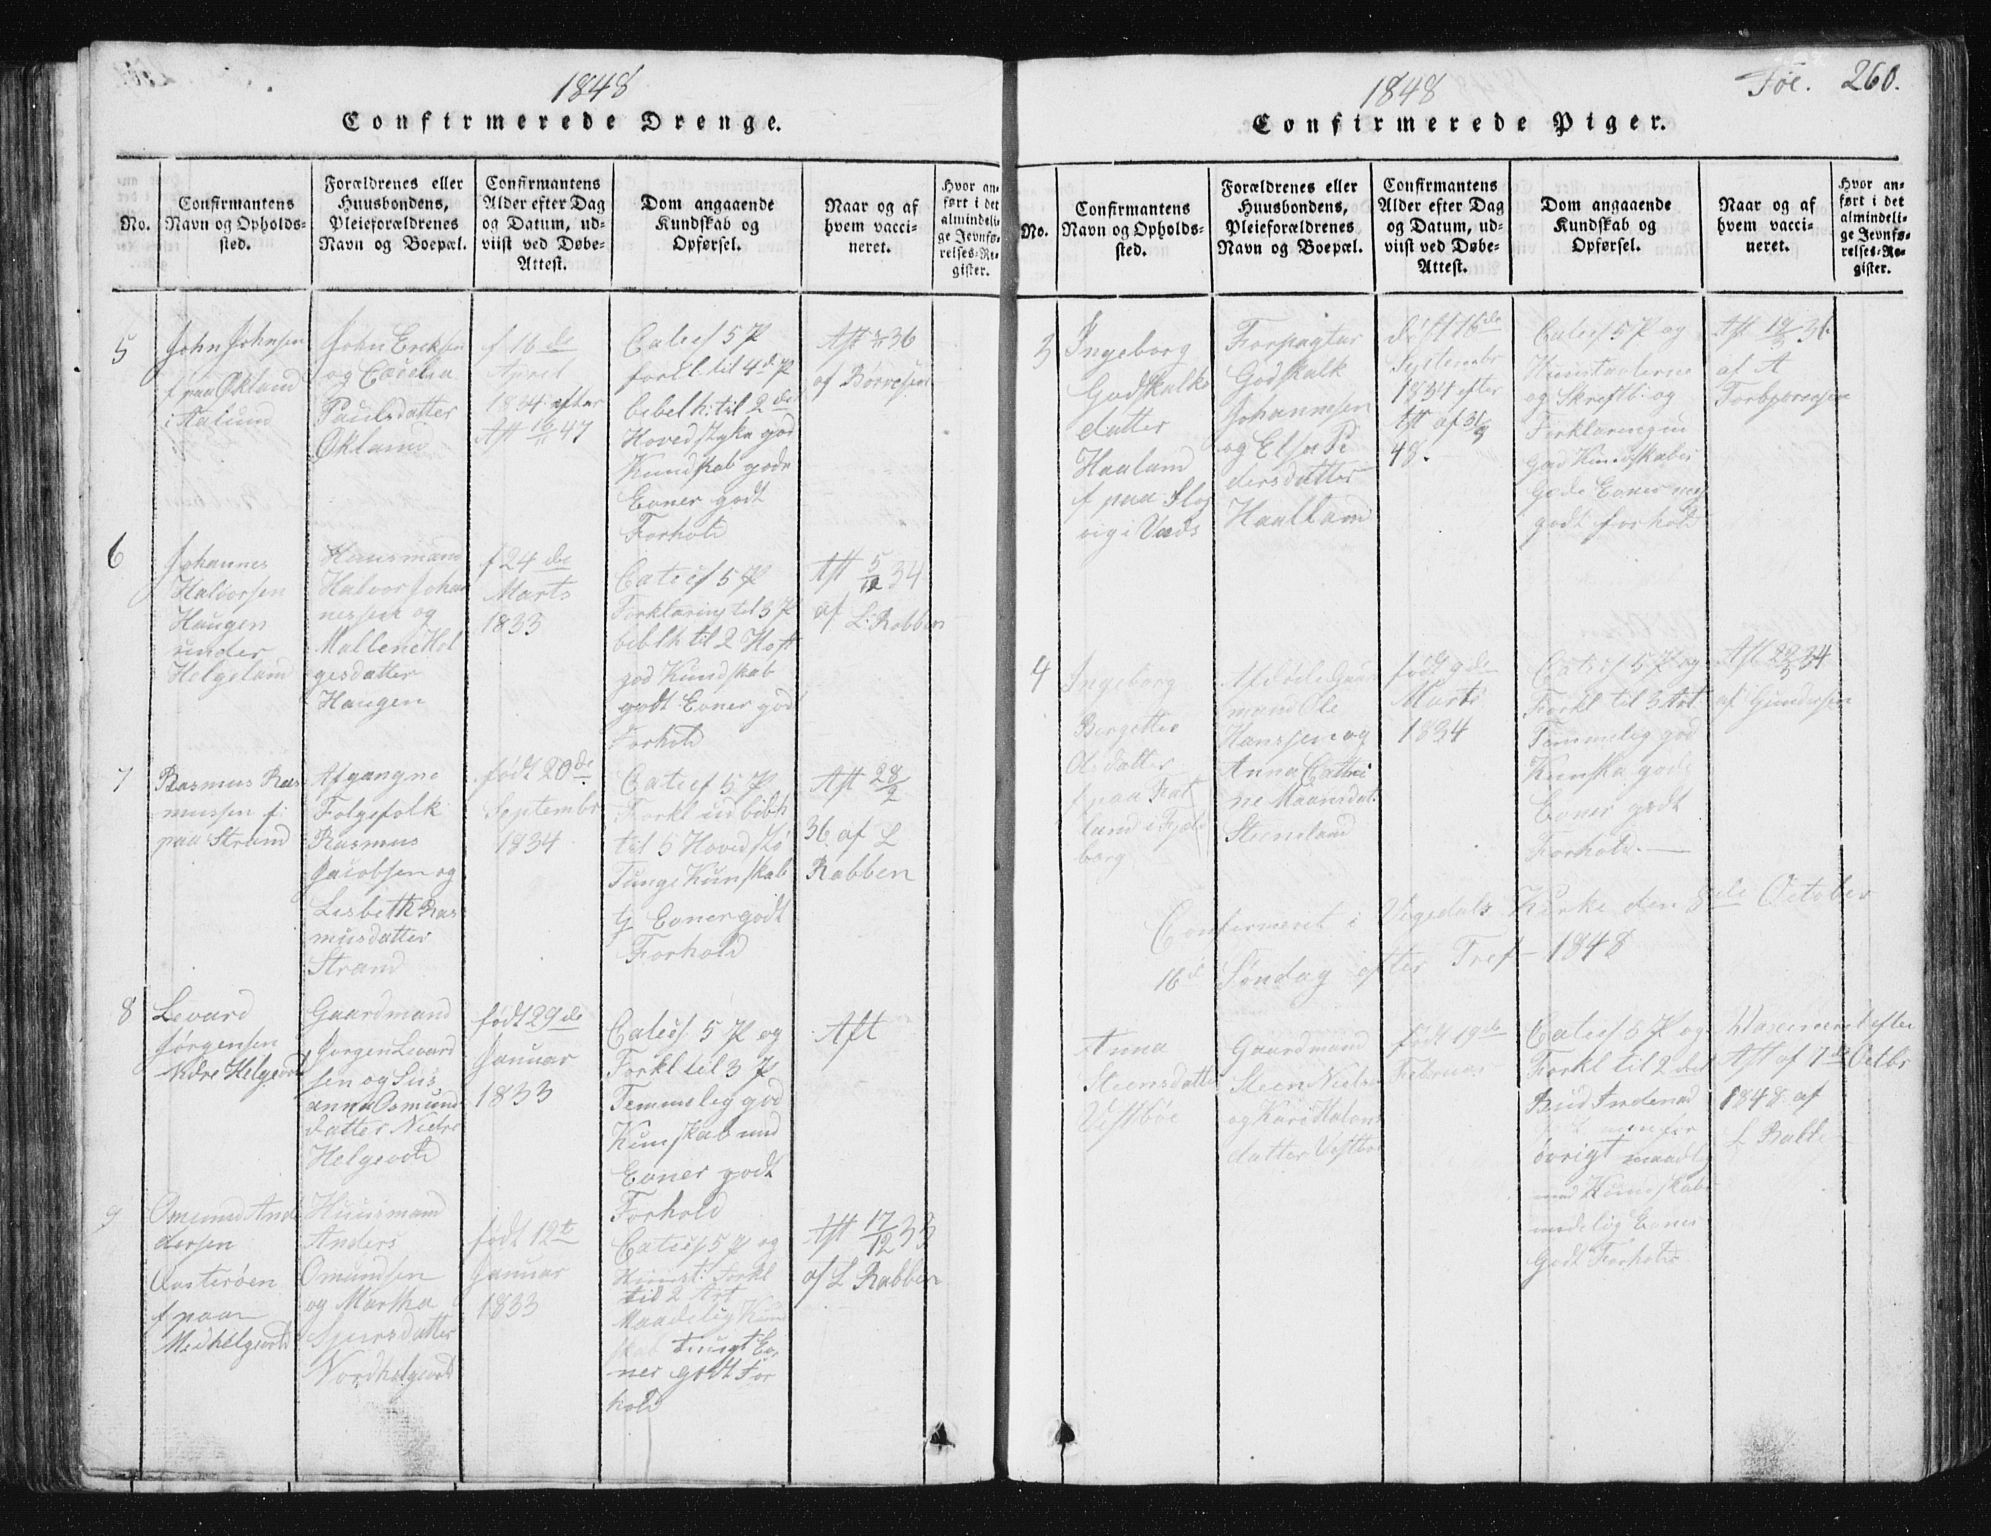 1848
Confirmerede Drenge.
No.
Confirmantens
Navn og Opholds-
sted.
Forældrenes eller
Huusbondens,
Pleieforældrenes
Navn og Boepæl.
Confirmantens
Alder efter Dag
og Datum, ud-
viist ved Døbe-
Attest.
Dom angaaende
Kundskab og
Opførsel.
Naar og af
hvem vacci-
neret.
Hvor an-
ført i det
almindeli-
ge Jevnfø-
relses-Re-
gister.
5
John Johnsen
f paa Økland
i Aalund
John Ereksen
og Cecelia
Paulsdatter
Økland
f 16de
April
1834 efter
Aft 16/11 47
Catecf 5 P
forkl til 4de P
bibelh: til 2de
Hovedstyke god
Kundskab gode
Evner godt
Forhold
Aft 36
af Børresen
6
Johannes
Halvorsen
Haugen
under
Helgeland
Huusmand
Halvor Johan
nessen og
Mallene Hel
gesdatter
Haugen
f 24de
Marts
1833
Catecf 5 P
Forklaring til 3 P
bibelh til 2 Host
god Kundskab
godt Evner god
Forhold
Aft 5/12 34
af L: Robben
7
Rasmus Ras
mussen f:
paa Strand
Afgangne
Folgefolk
Rasmus
Jacobsen og
Lisbeth Ras
musdatter
Strand
født 20de
Septembr
1834
Catecf 5 P
Forkl ud bibh
til 5 Hovedstø
Tunge Kunskab
g Evner godt
Forhold
Aft 28/2
36. af L
Rabben
8
Levard
Jørgensen
Nedre Helgevold
Gaardmand
Jørgen Levard
sen og Sus
anna Osmund
datter Nedre
Helgevold
født 29de
Januar
1833
Catecf. 5 P og
Forkl til 3 P
Temmelig god
Kunskab und
Evner godt
Forhold
Aft
9
Omund And
dersen
Oosterøen
f paa
Medhelgevold
Huusmand
Anders
Omundsen
og Martha
Sjursdatter
Nordhelgevold
født 12t
Januar
1833
Catecf 5 P og
Hiinst: Forkl
tid 2 Art
Maadelig Kund
skab tungt Ev,
ner godt For
hold
Aft 17/12 33
af L Rabben
1848
Føe. 260.
Confirmerede Piger.
No.
Confirmantens
Navn og Opholds-
sted.
Forældrenes eller
Huusbondens,
Pleieforældrenes
Navn og Boepæl.
Confirmantens
Alder efter Dag
og Datum, ud-
viist ved Døbe-
Attest.
Dom angaaende
Kundskab og
Opførsel.
Naar og af
hvem vacci-
neret.
Hvor an-
ført i det
almindeli-
ge Jevnfø-
relses-Re-
gister.
3
Ingeborg
Godskalks
datter
Haaland
f paa
vig i Vads
Forpagter
Godskalk
Johannesen
og Elsa Pe
dersdatter
Haaland
født 16de
Septembr
1834 efter
Att af 31/9
48.
Catecf 5 P og
Huustavlerne
og Skriftb: og
Forklaringen
god Kundskaber
Gode Evner meg
godt forhold
Aft 19/5 36.
af A
Torbjørensen
4
Ingeborg
Bergette
Olsdatter
f paa
land i Fjel
berg
Afdøde Gaar
mand Ole
Hanssen og
Anna Cathri
ne Maansdat
Steensland
født 9de
Marts
1834
Catecf 5 P og
Forkl til 3 Art
Temmelig god
Kunska gode
Evner godt
Forhold.
Aft 29/5 34
af Gundersen
Confirmeret i Vegedals Kirke den 8de October
16d Søndag efter Tref - 1848
Anna
Steensdatter
Vestbøe
Gaardmand
Steen Nielsen
og Kari Halvors
datter Vestbøe
født 19de
Februar
Catecf 5 P og
Forkl til 2 det
Bud Indenad
øvrigt maadlig
med Kundskaber
maadelig Evner
Godt Forhold
Vaxineret efter
Aft af 7de Octbr
1848 af
L Rabbe